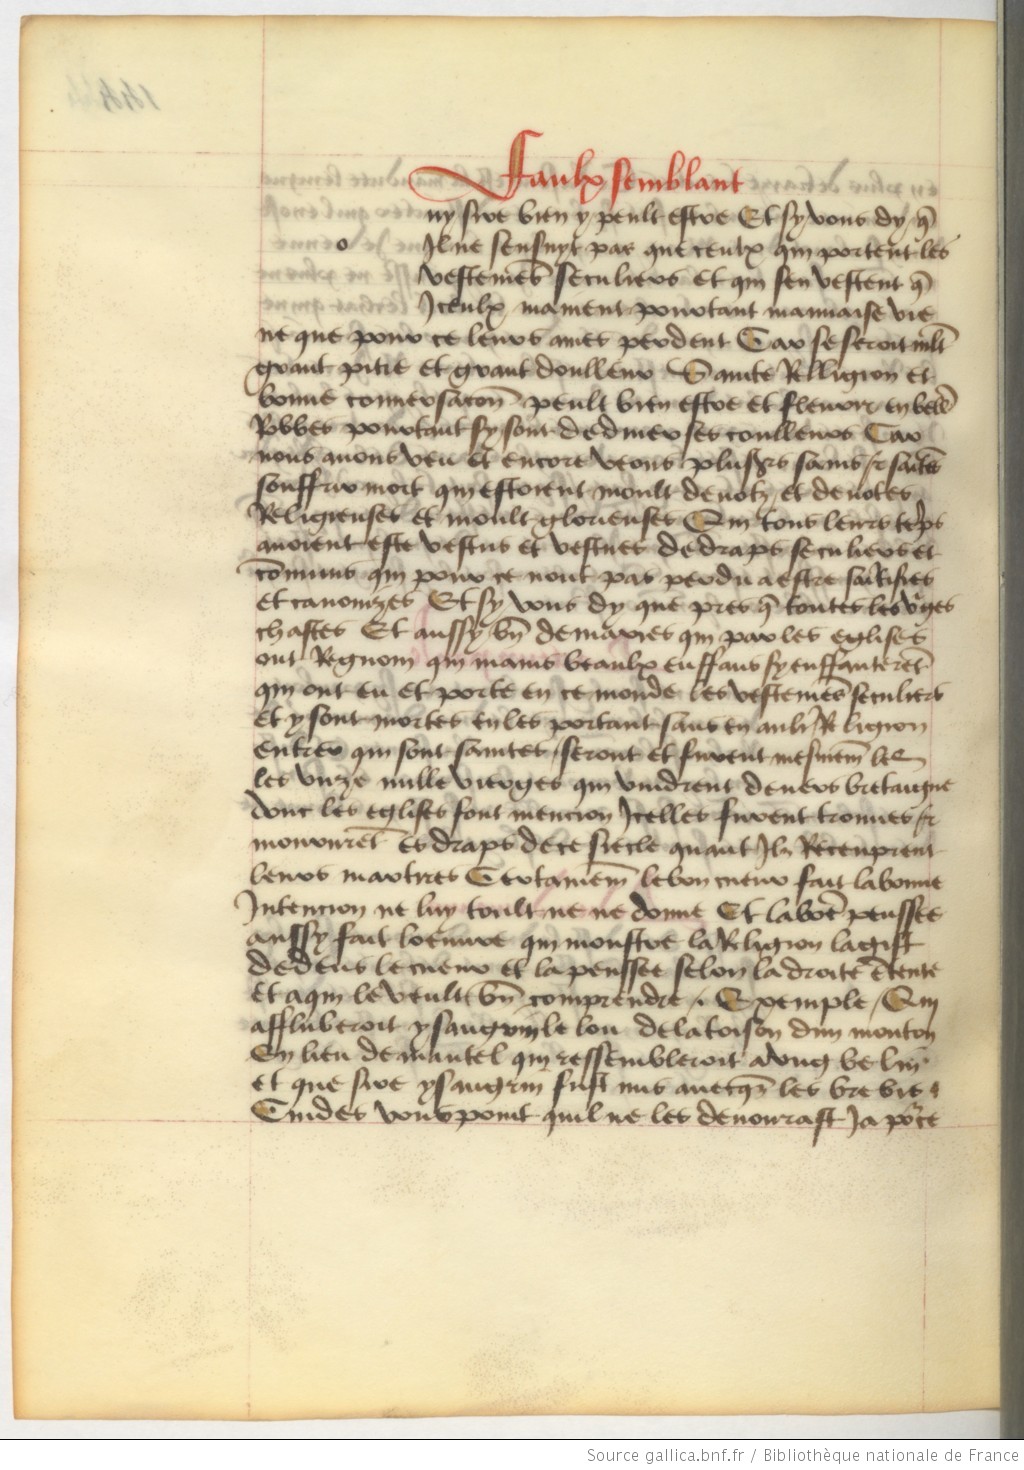 Faulx semblant
uy sire bien y peult estre Et sy vous dy q̄
o
Il ne sensuyt pas que ceulx qui portent les
vestemēs seculiers et qui sen vestent q̄
Iceulx mainent pourtant mauuaise vie
ne que pour ce leurs ames perdent Car se seroit mlt
grant pitie et grant doulleur Saincte Relligion et
bonne conuersacōn peult bien estre et flourir en bell
Robbes pourtant sy sont de diuerses coulleurs Car
nous auons veu et encore veons plusrs sains & saites
souffrir mort qui estoient moult deuotz et deuotes
Religieuses et moult glorieuses Qui tous leurs tēps
auoient este vestus et vestues de draps seculiers et
cōmuns qui pour ce nont pas perdu a estre saītifies
et canonizes Et sy vous dy que pres q̄ toutes les v̄ges
chastes Et aussy bn̄ de maries qui par les eglises
ont Regnom qui mains beaulx enffans sy enffanterēt
qui ont eu et porte en ce monde les vestemēs seculiers
et y sont mortes en les portant sans en aultr Religion
entrer qui sont saintes seront et furent mesmem̄
les vnze mille vierges qui vindrent deuers bretaigne
donc les eglises font mencion Icelles furent trouues &
moururēt es draps de ce siecle quant Ilz Receuprent
leurs martires Certainem̄ le bon cueur fait la bonne
Intencion ne luy toult ne ne donne Et la bōe pensse
aussy fait loeuure qui monstre la Religion la gist
dedens le cueur et la pensse selon la droite ētente
et a qui le veult bn̄ comprendre . Exemple / Qui
affluberoit ysangrin le lou de la toison dun mouton
En lieu de mantel qui ressembleroit a vng belin
et que sire ysangrin fust mis auecq̄s les brebis
Cuides vous point quil ne les deuourast Ia pour ce
Source gallica.bnf.fr / Bibliothèque nationale de France